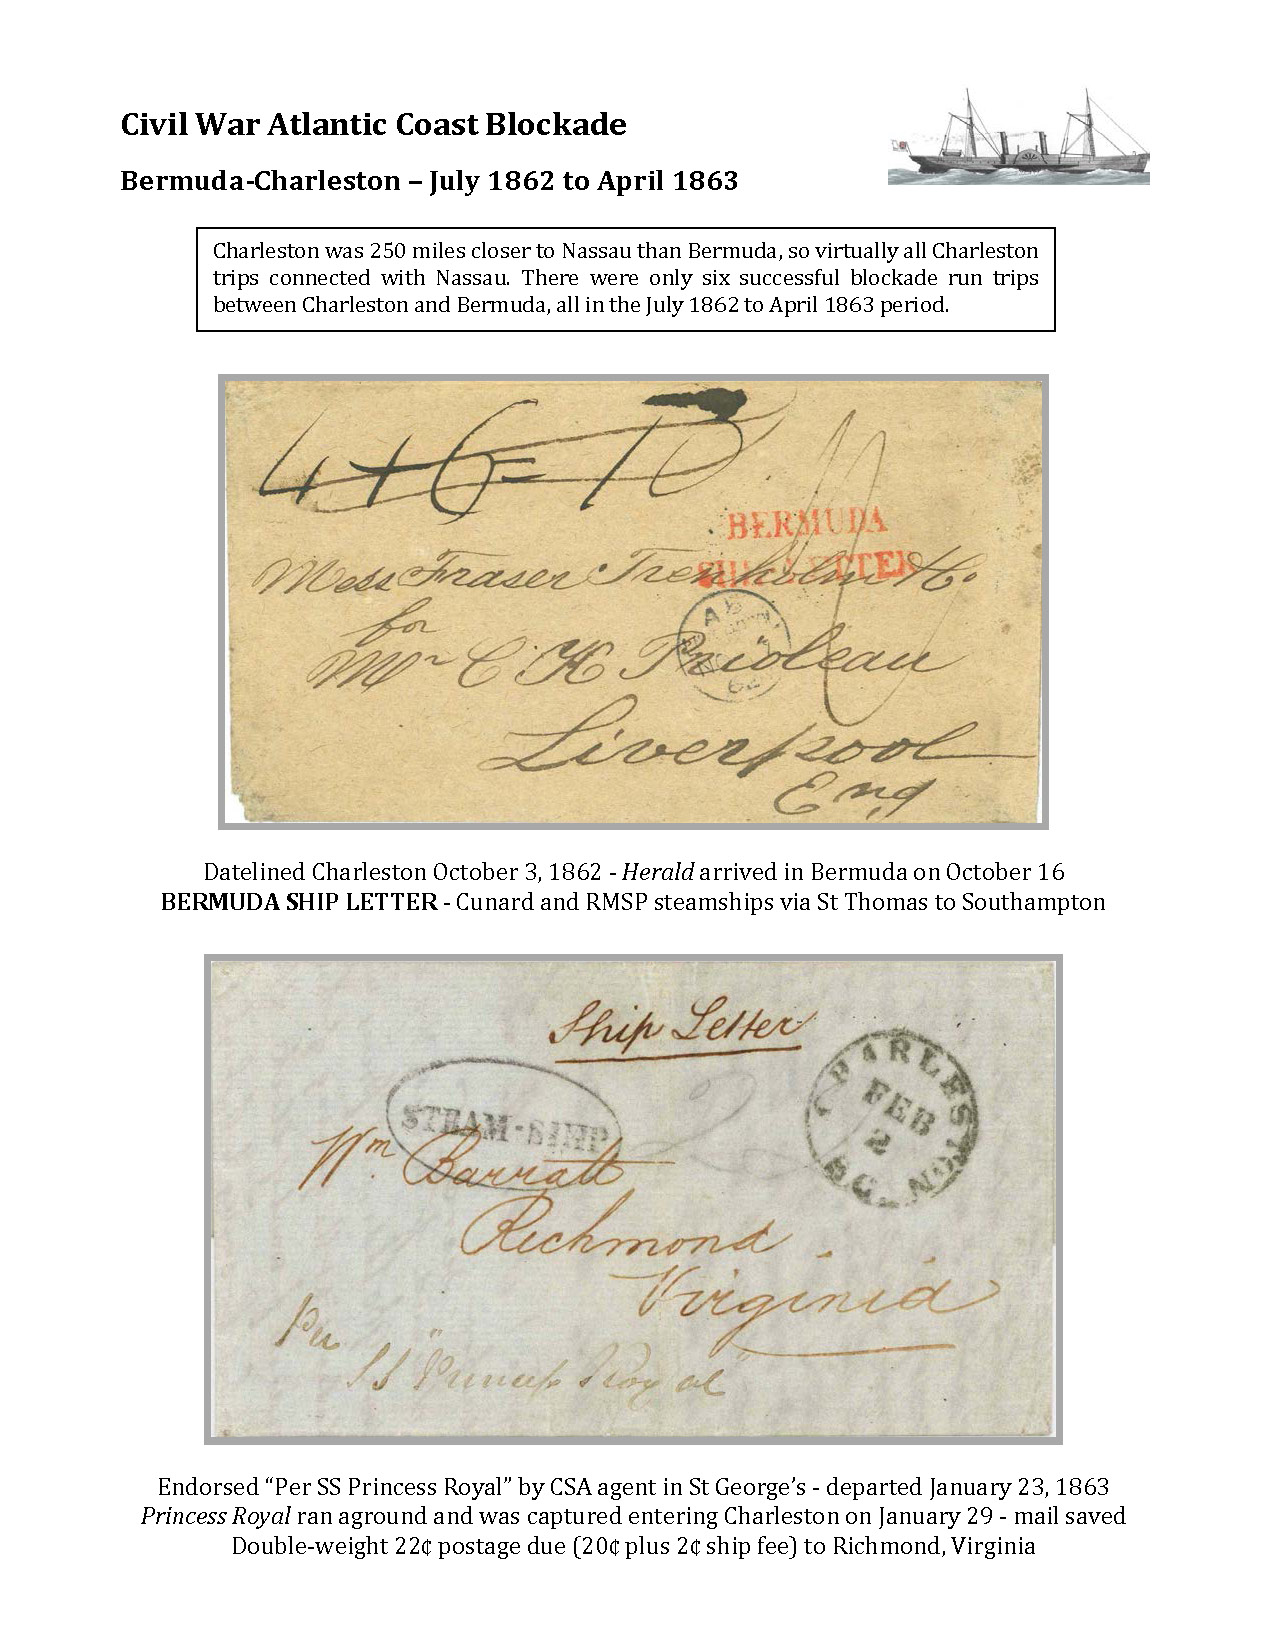 Civil War Atlantic Coast Blockade
Bermuda-Charleston – July 1862 to April 1863
Charleston was 250 miles closer to Nassau than Bermuda, so virtually all Charleston
trips connected with Nassau. There were only six successful blockade run trips
between Charleston and Bermuda, all in the July 1862 to April 1863 period.
4+6=10
BERMUDA
SHIP LETTER
Mess Fraser Trenholm & Co.
for
Mr C K Prioleau
62
Liverpool
Eng
Datelined Charleston October 3, 1862 - Herald arrived in Bermuda on October 16
BERMUDA SHIP LETTER - Cunard and RMSP steamships via St Thomas to Southampton
Ship Letter
STEAM-SHIP
22
CHARLESTON S.C.
FEB
2
Wm Barratt
Richmond
Virginia
Per
SS "Princess Royal"
Endorsed “Per SS Princess Royal” by CSA agent in St George’s - departed January 23, 1863
Princess Royal ran aground and was captured entering Charleston on January 29 - mail saved
Double-weight 22¢ postage due (20¢ plus 2¢ ship fee) to Richmond, Virginia